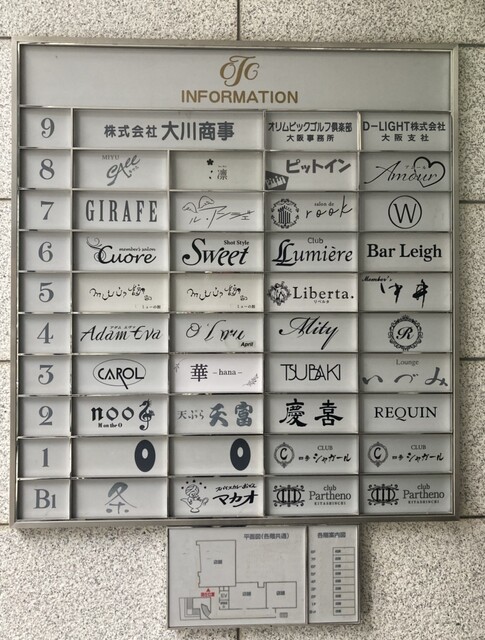 OTG
INFORMATION
9
株式会社 大川商事
オリムピックゴルフ倶楽部
大阪事務所
D-LIGHT株式会社
大阪支社
8
MIYU
凛
ピットイン
Amour
7
GIRAFE
ル・アンジェ
salon de
rook
W
6
member's salon
Cuore
Shot Style
Sweet
Club
Lumière
Bar Leigh
5
Liberta.
リベルタ
Member's
4
アダム エヴァ
Adam Eva
April
Mily
R
3
CAROL
華 -hana-
TSUBAKI
Lounge
いづみ
2
noo
N on the O
天ぷら 天富
慶喜
REQUIN
1
O
O
C
CLUB
四季 シャガール
C
CLUB
四季 シャガール
B1
粂
スパイスカレーおでん
マカオ
club
Partheno
KITASHINCHI
club
Partheno
KITASHINCHI
平面図(各階共通)
各階案内図